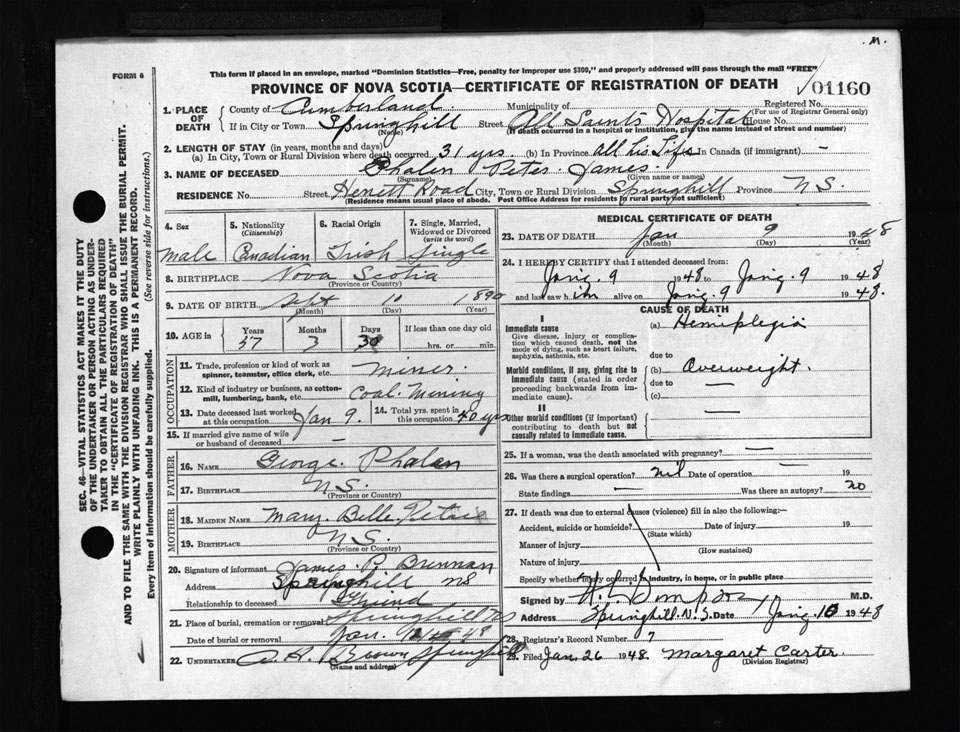 .M.
FORM 6
This form if placed in an envelope, marked "Dominion Statistics—Free, penalty for improper use $300," and properly addressed will pass through the mail "FREE"
PROVINCE OF NOVA SCOTIA—CERTIFICATE OF REGISTRATION OF DEATH
01160
1. PLACE OF DEATH
County of Cumberland Municipality of Registered No.
(For use of Registrar General only)
If in City or Town Springhill Street All Saints Hospital House No.
(Name) (If death occurred in a hospital or institution, give the name instead of street and number)
2. LENGTH OF STAY (in years, months and days)
(a) In City, Town or Rural Division where death occurred 31 yrs. (b) In Province all his Life In Canada (if immigrant) —
3. NAME OF DECEASED Phalen Peter James
(Surname) (Given name or names)
RESIDENCE No. Street Herrett Road City, Town or Rural Division Springhill Province N.S.
(Residence means usual place of abode. Post Office Address for residents in rural parts not sufficient)
4. Sex 5. Nationality (Citizenship) 6. Racial Origin 7. Single, Married, Widowed or Divorced (write the word)
male Canadian Irish Single
8. BIRTHPLACE Nova Scotia
(Province or Country)
9. DATE OF BIRTH Sept 10 1890
(Month) (Day) (Year)
10. AGE in Years Months Days If less than one day old
57 3 30 hrs. or min.
OCCUPATION
11. Trade, profession or kind of work as spinner, teamster, office clerk, etc. Miner.
12. Kind of industry or business, as cotton-mill, lumbering, bank, etc. Coal Mining
13. Date deceased last worked at this occupation Jan 9. 14. Total yrs. spent in this occupation 40 yrs
15. If married give name of wife or husband of deceased —
FATHER
16. NAME George Phalen
17. BIRTHPLACE N.S.
(Province or Country)
MOTHER
18. MAIDEN NAME Mary Belle
19. BIRTHPLACE N.S.
(Province or Country)
20. Signature of informant James P. Brennan
Address Springhill NS
Relationship to deceased Friend
21. Place of burial, cremation or removal Springhill NS
Date of burial or removal Jan. 12 48
22. UNDERTAKER A. H. Brown Springhill
(Name and address)
MEDICAL CERTIFICATE OF DEATH
23. DATE OF DEATH Jan 9 1948
(Month) (Day) (Year)
24. I HEREBY CERTIFY that I attended deceased from:
Jan. 9 1948 to Jan. 9 1948
and last saw him alive on Jan. 9 1948.
CAUSE OF DEATH
I
Immediate cause (a) Hemiplegia
Give disease, injury or complication which caused death, not the mode of dying, such as heart failure, asphyxia, asthenia, etc.
due to
Morbid conditions, if any, giving rise to immediate cause (stated in order proceeding backwards from immediate cause).
(b) Overweight.
due to —
(c)
II
Other morbid conditions (if important) contributing to death but not causally related to immediate cause.
—
25. If a woman, was the death associated with pregnancy? —
26. Was there a surgical operation? nil Date of operation — 19
State findings — Was there an autopsy? no
27. If death was due to external causes (violence) fill in also the following:—
Accident, suicide or homicide? Date of injury 19
(State which)
Manner of injury
(How sustained)
Nature of injury
Specify whether injury occurred in industry, in home, or in public place
Signed by M.D.
Address Springhill N.S. Date Jan. 10 1948
28. Registrar's Record Number 7
29. Filed Jan 26 1948. Margaret Carter.
(Division Registrar)
SEC. 46—VITAL STATISTICS ACT MAKES IT THE DUTY OF THE UNDERTAKER OR PERSON ACTING AS UNDERTAKER TO OBTAIN ALL THE PARTICULARS REQUIRED IN THE "CERTIFICATE OF REGISTRATION OF DEATH"
AND TO FILE THE SAME WITH THE DIVISION REGISTRAR WHO SHALL ISSUE THE BURIAL PERMIT.
WRITE PLAINLY WITH UNFADING INK. THIS IS A PERMANENT RECORD.
Every item of information should be carefully supplied. (See reverse side for instructions.)